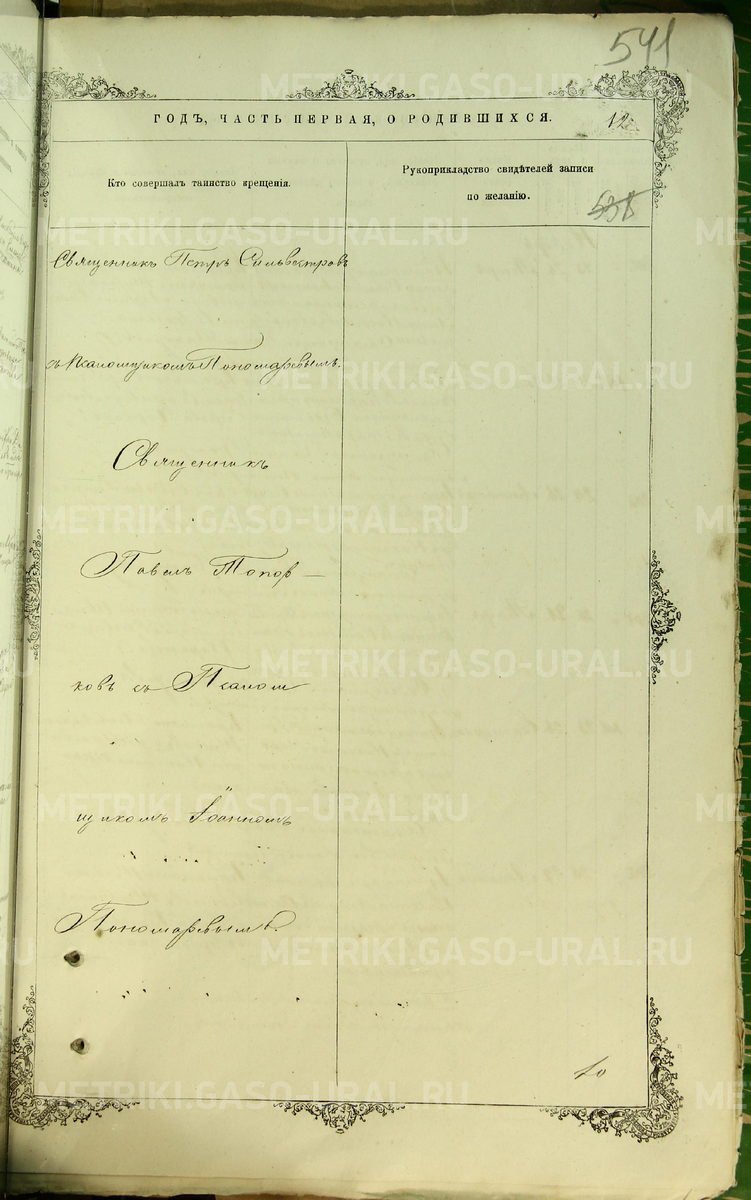 541
ГОДЪ, ЧАСТЬ ПЕРВАЯ, О РОДИВШИХСЯ.
12
Кто совершалъ таинство крещенія.
Рукоприкладство свидѣтелей записи
по желанію.
538
Священникъ Петръ Сильвестровъ
съ Псаломщикомъ Пономаревымъ.
Священникъ
Павелъ Топор-
ковъ съ Псалом
щикомъ Іоанномъ
Пономаревымъ.
METRIKI.GASO-URAL.RU